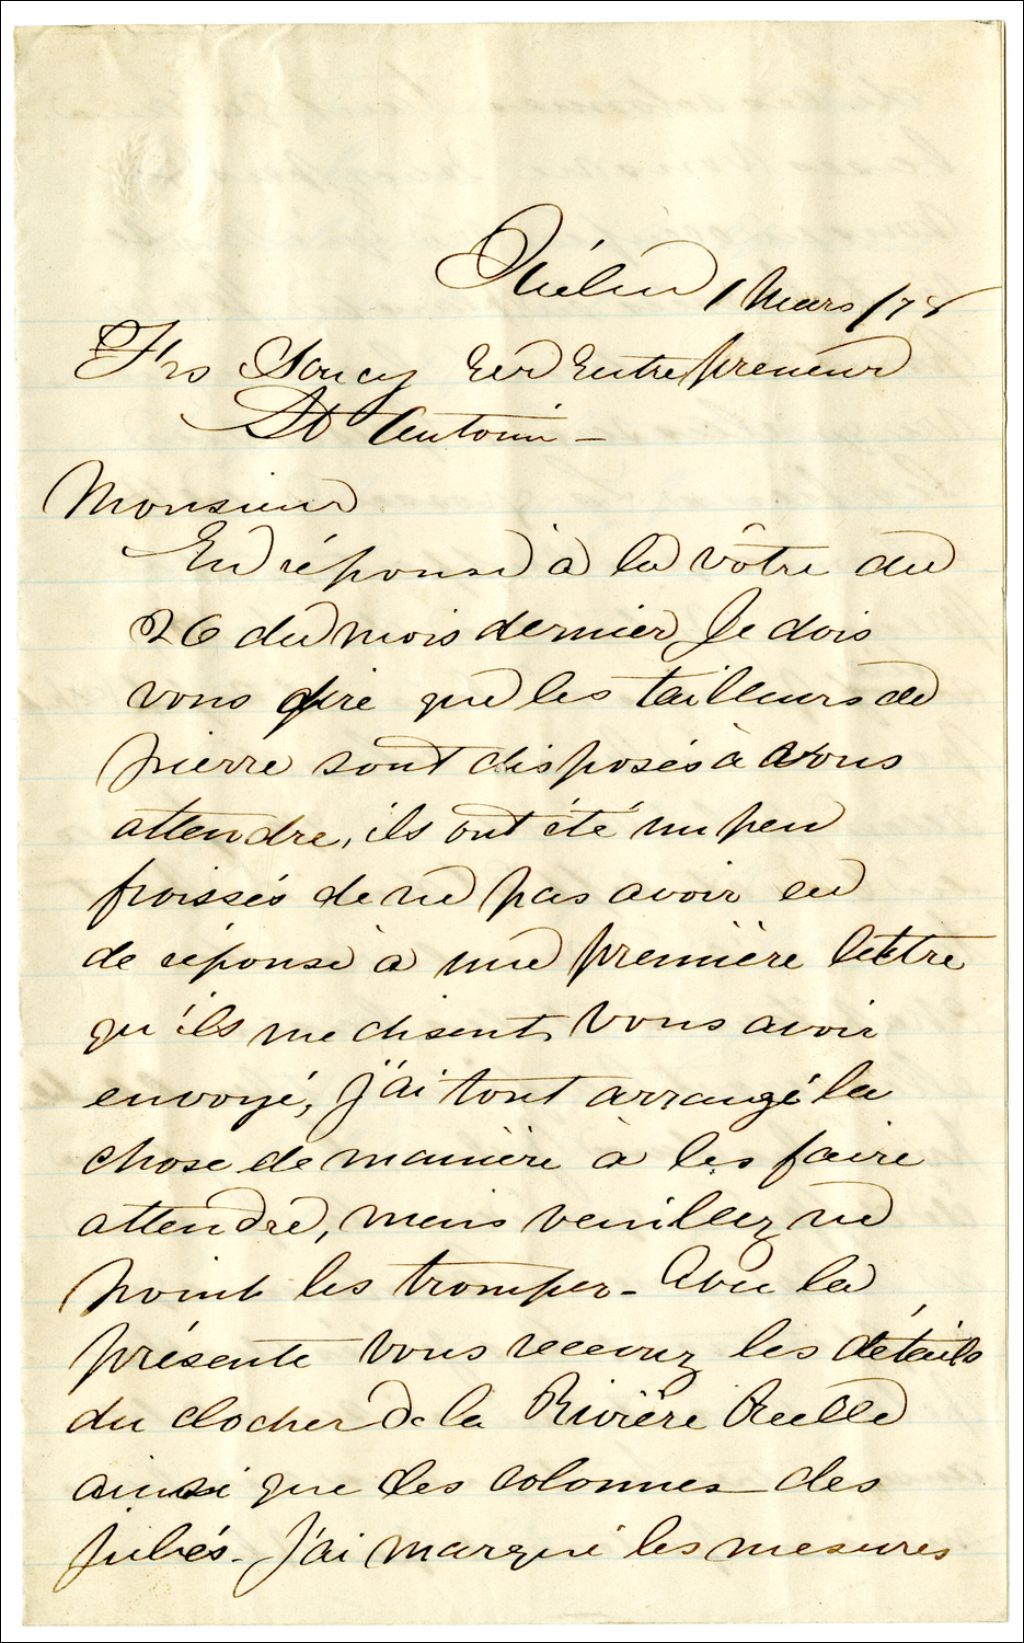 Québec 1 Mars /78
Frs Soucy Ecr Entrepreneur
St Antoine -
Monsieur
En réponse à la vôtre du
26 du mois dernier, Je dois
vous dire que les tailleurs de
pierre sont disposés à vous
attendre, ils ont été un peu
froissés de ne pas avoir eu
de réponse à une première lettre
qu'ils me disent vous avoir
envoyé, j'ai tout arrangé la
chose de manière à les faire
attendre, mais veuillez ne
point les tromper - Avec la
présente vous recevrez les détails
du clocher de la Rivière Ouelle
ainsi que les colonnes des
jubés - J'ai marqué les mesures